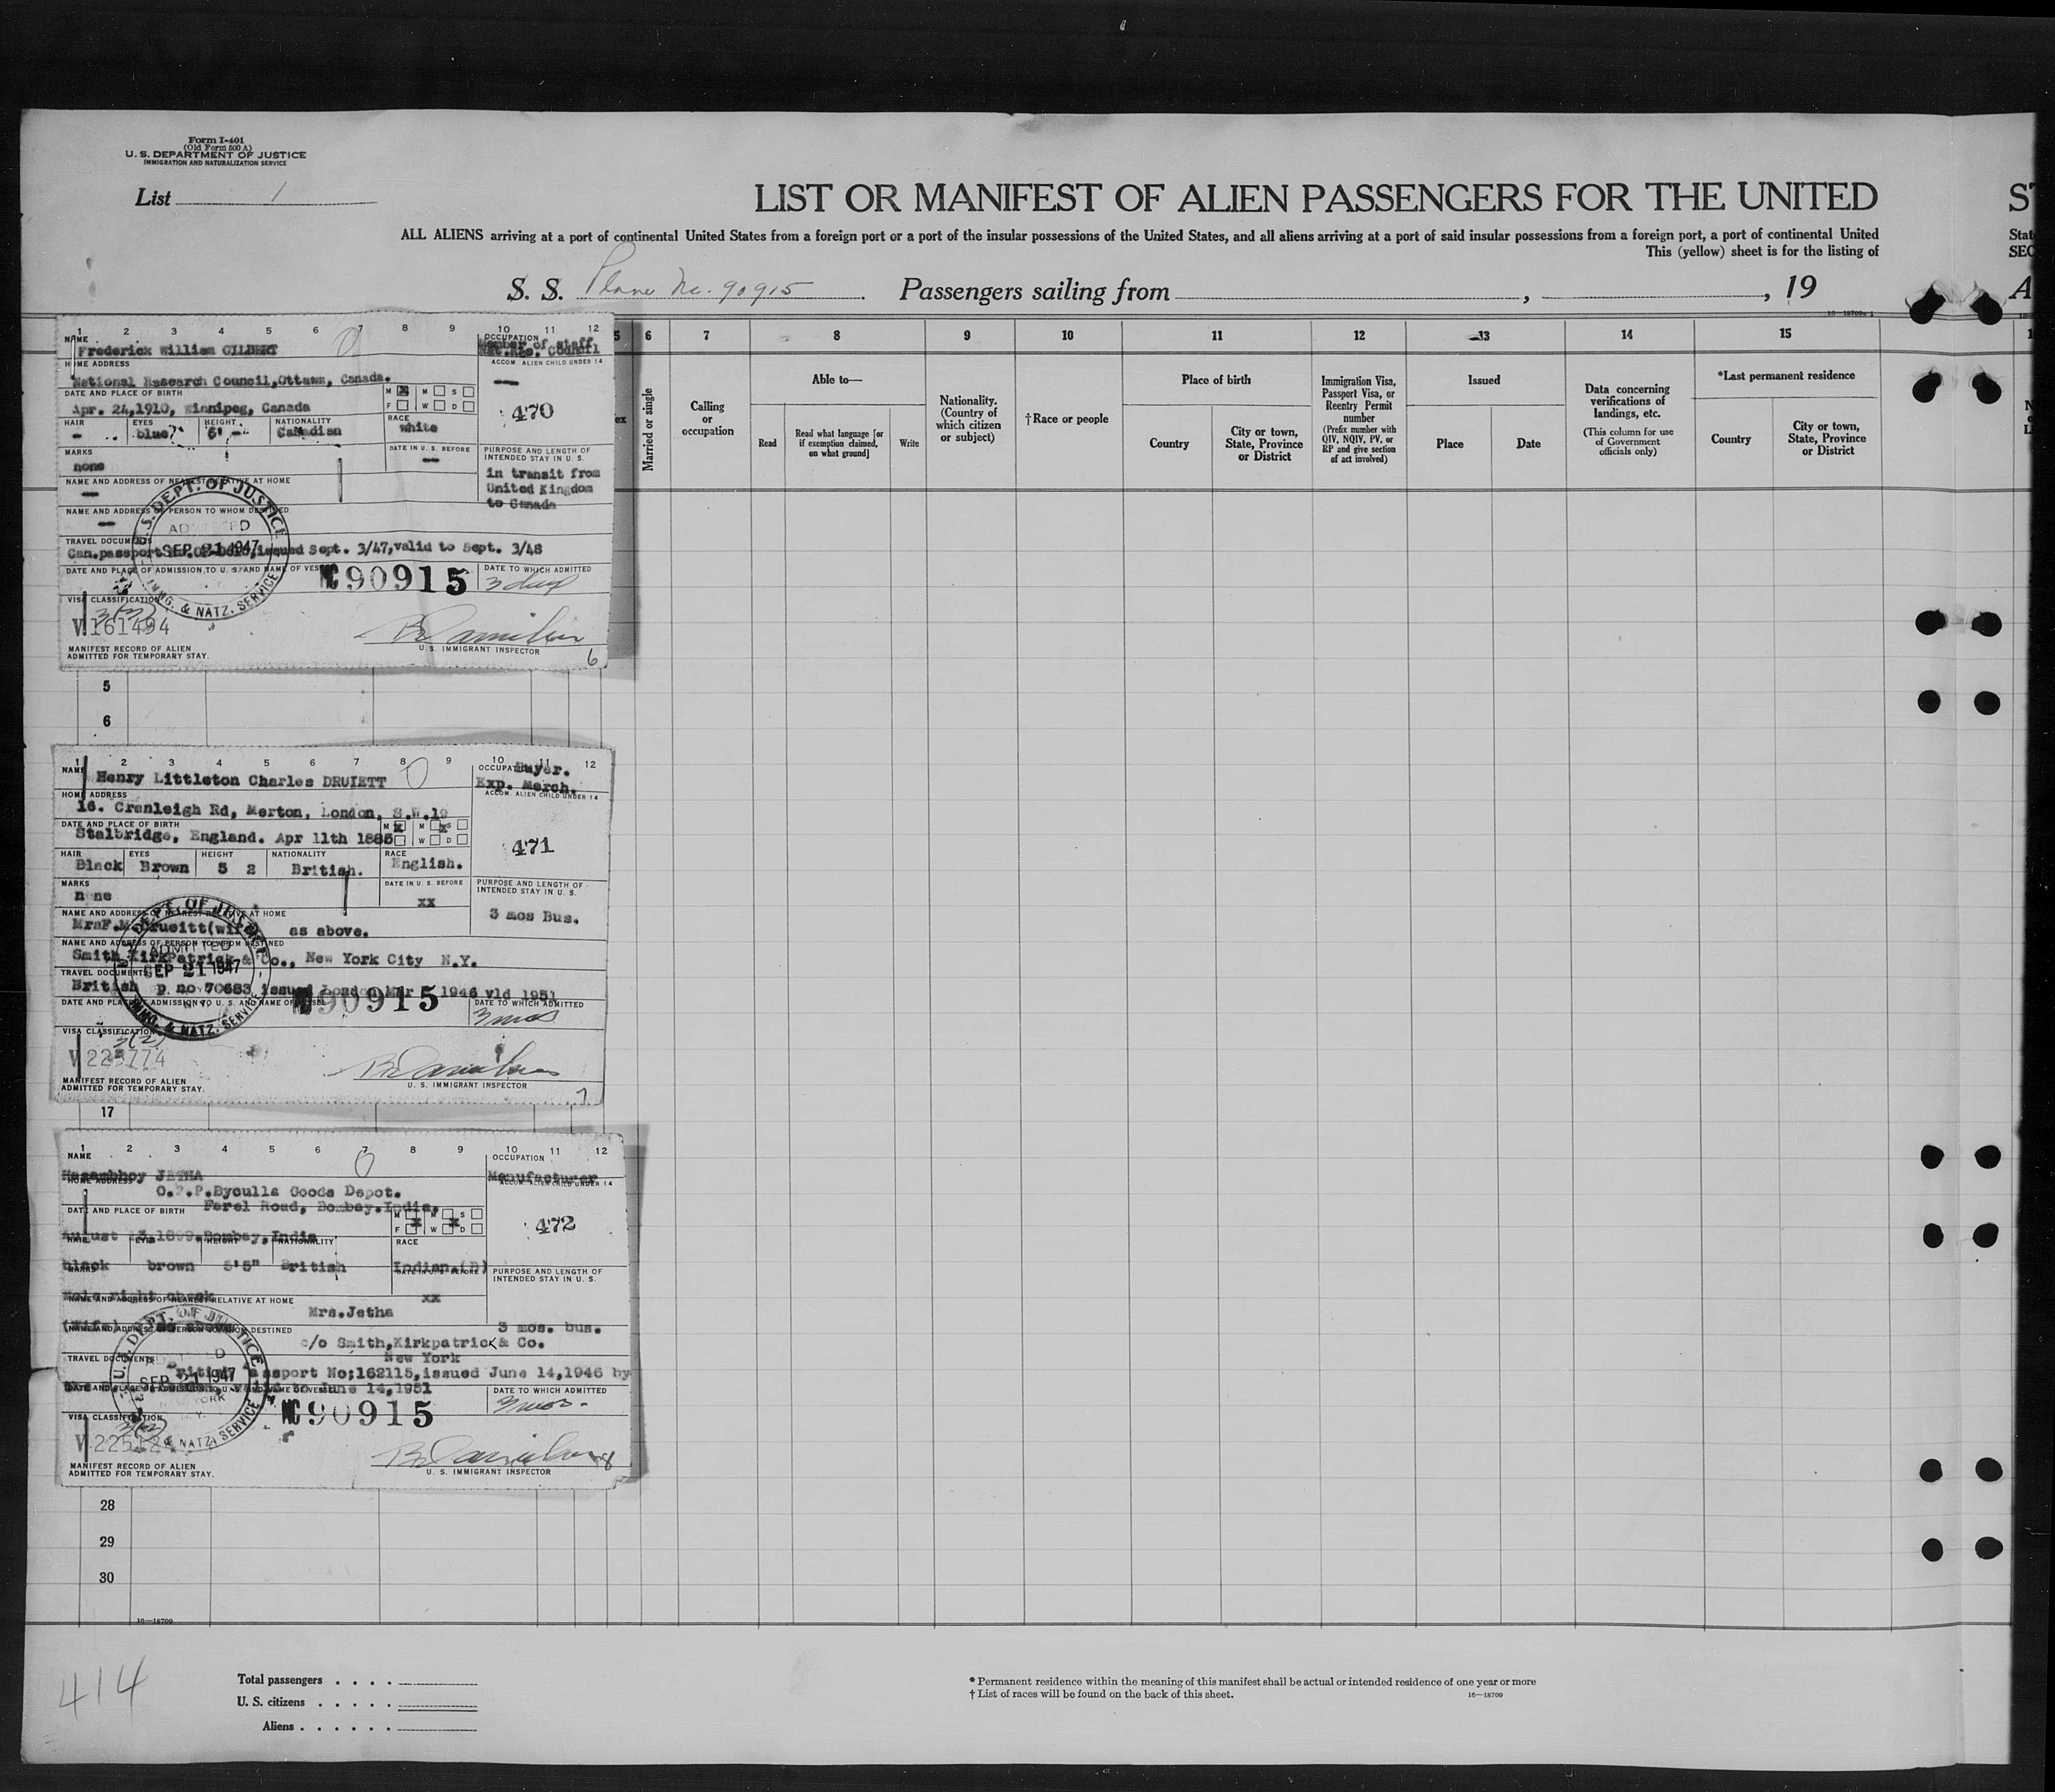 Form I-401
(Old Form 500 A)
U. S. DEPARTMENT OF JUSTICE
IMMIGRATION AND NATURALIZATION SERVICE
List 1
LIST OR MANIFEST OF ALIEN PASSENGERS FOR THE UNITED
ST
ALL ALIENS arriving at a port of continental United States from a foreign port or a port of the insular possessions of the United States, and all aliens arriving at a port of said insular possessions from a foreign port, a port of continental United
Stat
This (yellow) sheet is for the listing of
SEC
S. S. Plane No. 90915 Passengers sailing from , , 19
A
16—18709
1 2 3 4 5 6 7 8 9 10 11 12
NAME
Frederick William GILBERT
OCCUPATION
Member of staff
Nat.Res. Council
HOME ADDRESS
ACCOM. ALIEN CHILD UNDER 14
National Research Council,Ottawa, Canada.
—
DATE AND PLACE OF BIRTH
M X M S
F W D
Apr. 24,1910, Winnipeg, Canada
470
HAIR EYES HEIGHT NATIONALITY RACE
- blue 6' - Canadian white
MARKS
DATE IN U. S. BEFORE
PURPOSE AND LENGTH OF INTENDED STAY IN U. S.
none
—
in transit from
United Kingdom
to Canada
NAME AND ADDRESS OF NEAREST RELATIVE AT HOME
—
NAME AND ADDRESS OF PERSON TO WHOM DESTINED
—
TRAVEL DOCUMENTS
Can.passport issued Sept. 3/47,valid to Sept. 3/48
U.S. DEPT. OF JUSTICE
ADMITTED
SEP 21 1947
IMMG. & NATZ. SERVICE
DATE AND PLACE OF ADMISSION TO U. S. AND NAME OF VESSEL
NC90915
DATE TO WHICH ADMITTED
3 days
VISA CLASSIFICATION
3(3)
V 161494
U. S. IMMIGRANT INSPECTOR
MANIFEST RECORD OF ALIEN
ADMITTED FOR TEMPORARY STAY.
6
5
6
1 2 3 4 5 6 7 8 9 10 11 12
NAME
Henry Littleton Charles DRUIETT
OCCUPATION
Buyer.
Exp. Merch.
HOME ADDRESS
ACCOM. ALIEN CHILD UNDER 14
16. Cranleigh Rd, Merton, London, S.W.19
DATE AND PLACE OF BIRTH
M X M X S
W D
Stalbridge, England. Apr 11th 1885
471
HAIR EYES HEIGHT NATIONALITY RACE
Black Brown 5 2 British. English.
MARKS
DATE IN U. S. BEFORE
PURPOSE AND LENGTH OF INTENDED STAY IN U. S.
none
xx
3 mos Bus.
NAME AND ADDRESS OF NEAREST RELATIVE AT HOME
MrsF.M.Drueitt(wife) as above.
NAME AND ADDRESS OF PERSON TO WHOM DESTINED
Smith KirkPatrick & Co., New York City N.Y.
TRAVEL DOCUMENTS
British p. no 70683 issued London Mar 1946 vld 1951
DEPT. OF JUSTICE
ADMITTED
SEP 21 1947
IMMG. & NATZ. SERVICE
DATE AND PLACE OF ADMISSION TO U. S. AND NAME OF VESSEL
90915
DATE TO WHICH ADMITTED
3 mos
VISA CLASSIFICATION
3(2)
V 225774
U. S. IMMIGRANT INSPECTOR
MANIFEST RECORD OF ALIEN
ADMITTED FOR TEMPORARY STAY.
7
17
1 2 3 4 5 6 7 8 9 10 11 12
NAME
OCCUPATION
JETHA
Manufacturer
HOME ADDRESS
ACCOM. ALIEN CHILD UNDER 14
O.P.P.Byculla Goods Depot.
Ferel Road, Bombay.India.
DATE AND PLACE OF BIRTH
M M S
F X W X D
August 1899.Bombay,India
472
HAIR EYES HEIGHT NATIONALITY RACE
black brown 5'5" British Indian.(B)
MARKS
DATE IN U. S. BEFORE
PURPOSE AND LENGTH OF INTENDED STAY IN U. S.
Mole right cheek
xx
NAME AND ADDRESS OF NEAREST RELATIVE AT HOME
Mrs.Jetha
(Wife) as above
3 mos. bus.
NAME AND ADDRESS OF PERSON TO WHOM DESTINED
c/o Smith,Kirkpatrick & Co.
New York
TRAVEL DOCUMENTS
British Passport No;162115,issued June 14,1946 by
valid to June 14,1951
U.S. DEPT. OF JUSTICE
SEP 21 1947
NEW YORK
N.Y.
& NATZ. SERVICE
DATE AND PLACE OF ADMISSION TO U. S. AND NAME OF VESSEL
NC90915
DATE TO WHICH ADMITTED
3 mos.
VISA CLASSIFICATION
U. S. IMMIGRANT INSPECTOR
MANIFEST RECORD OF ALIEN
ADMITTED FOR TEMPORARY STAY.
8
28
29
30
16—18709
5 6 7 8 9 10 11 12 13 14 15
ex
Married or single
Calling or occupation
Able to—
Read
Read what language [or if exemption claimed, on what ground]
Write
Nationality. (Country of which citizen or subject)
†Race or people
Place of birth
Country
City or town, State, Province or District
Immigration Visa, Passport Visa, or Reentry Permit number
(Prefix number with QIV, NQIV, PV, or RP and give section of act involved)
Issued
Place
Date
Data concerning verifications of landings, etc.
(This column for use of Government officials only)
*Last permanent residence
Country
City or town, State, Province or District
414
Total passengers . . . .
U. S. citizens . . . . .
Aliens . . . . . .
* Permanent residence within the meaning of this manifest shall be actual or intended residence of one year or more
† List of races will be found on the back of this sheet.
16—18709